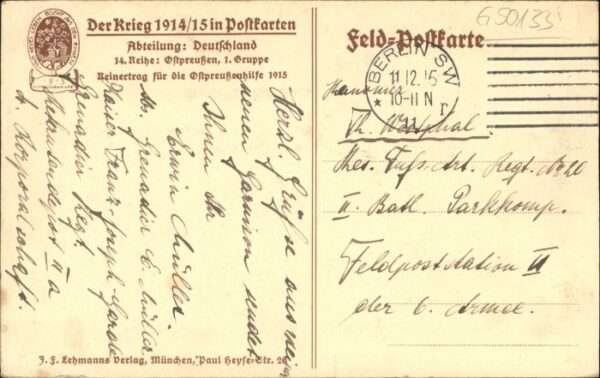 Der Krieg 1914/15 in Postkarten
Abteilung: Deutschland
14. Reihe: Ostpreußen, 1. Gruppe
Reinertrag für die Ostpreußenhilfe 1915
Herzl. Grüße aus mei
neuen Garnison sendet
Ihnen Ihr
Erwin Müller.
Abs. Grenadier E. Müller
Kaiser Franz-Joseph-Garde
Grenadier Regt.
Rekrutendepot II a
Korporalschaft.
J. F. Lehmanns Verlag, München, Paul Heyse-Str. 26
G50133
Feld-Postkarte
BERLIN SW
11.12.15
*10-11 N
11 r
Kanonier
Th. Westphal
Res. Fuß-Art. Regt. No 20
II. Batl. Parkkomp.
Feldpoststation
der 6. Armee.